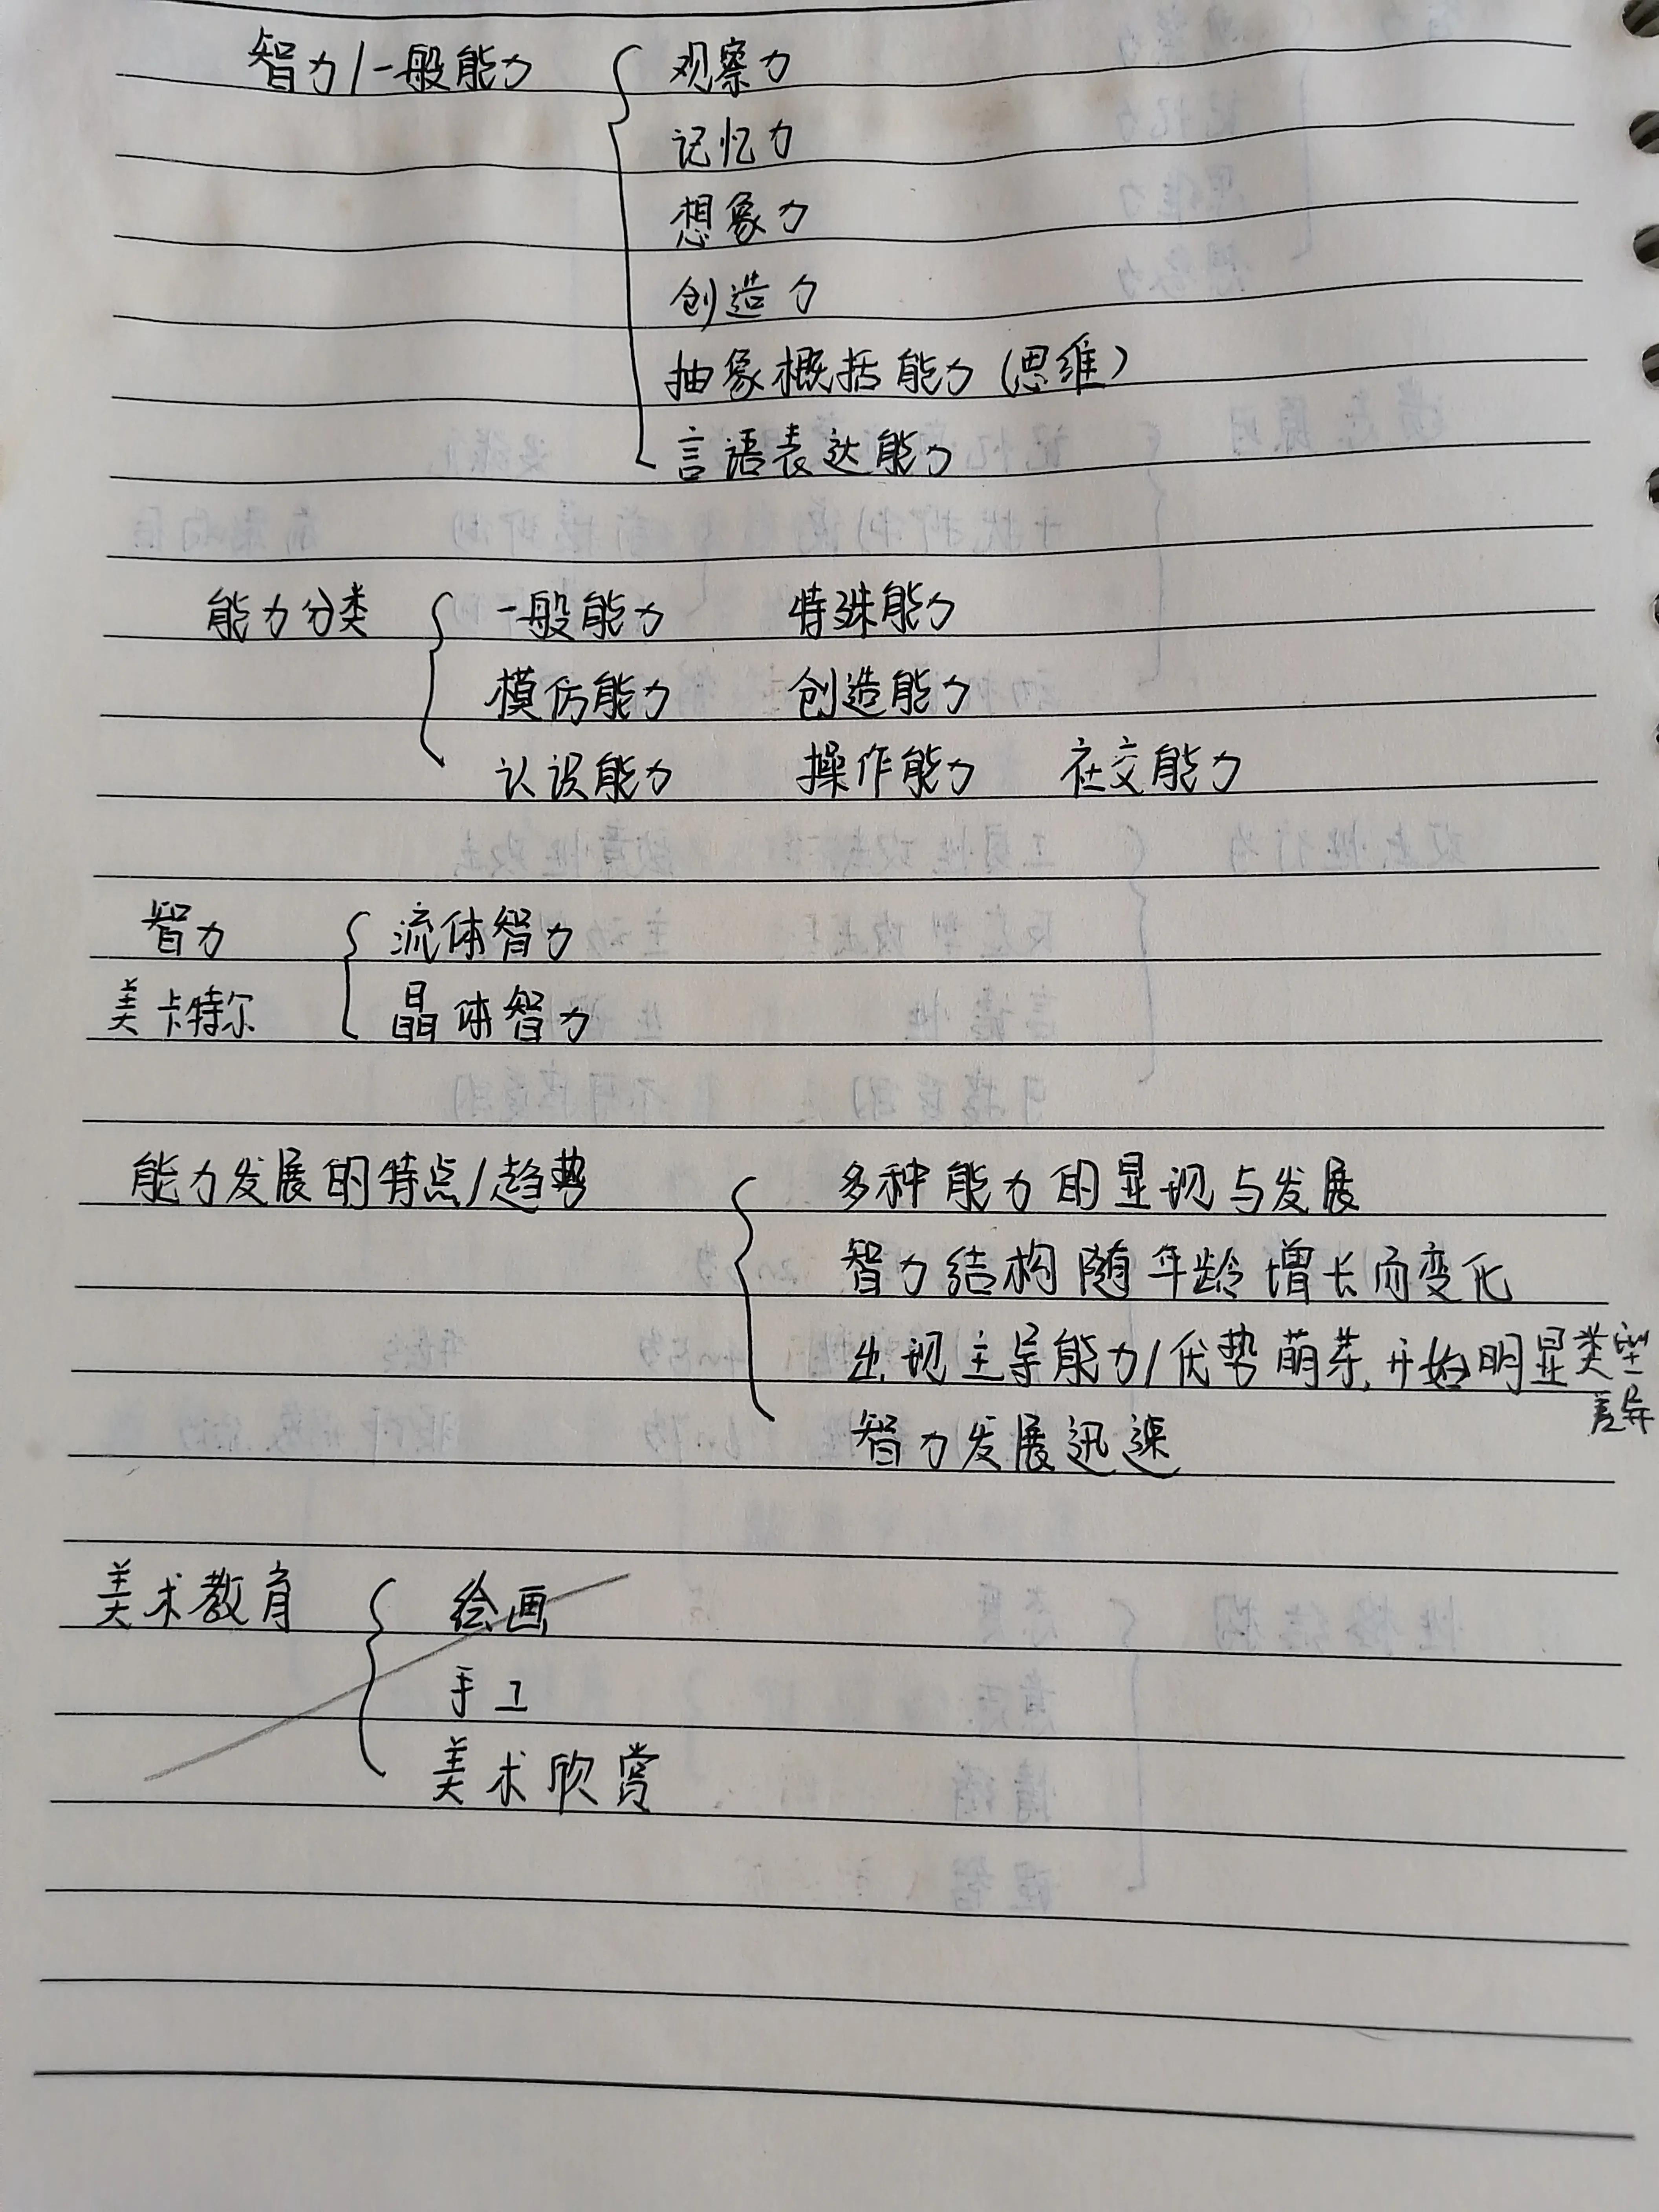 智力/一般能力 { 观察力
记忆力
想象力
创造力
抽象概括能力(思维)
言語表达能力
能力分类 { 一般能力 特殊能力
模仿能力 创造能力
认识能力 操作能力 社交能力
智力 { 流体智力
美卡特尔 晶体智力
能力发展的特点/趋势 { 多种能力的显现与发展
智力结构随年龄增长而变化
出现主导能力/优势萌芽,开始明显类型
差异
智力发展迅速
美术教育 { 绘画
手工
美术欣赏